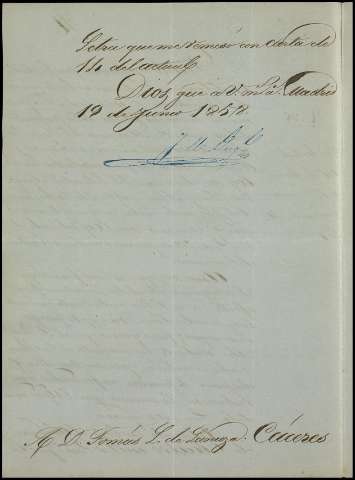 Letra que me remesó con carta de
14 del actual.
Dios gue á V. m.s a.s Madrid
19 de Junio 1858.
A D. Tomás L. de Lanuza. Cáceres